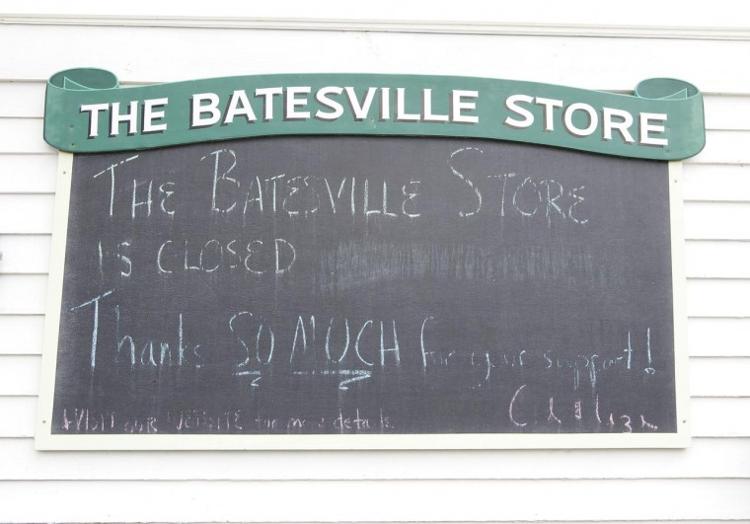 THE BATESVILLE STORE
THE BATESVILLE STORE
IS CLOSED
Thanks SO MUCH for your support!
VISIT our WEBSITE for more details